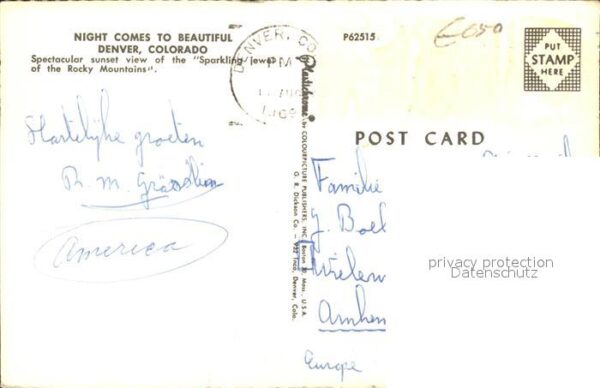 NIGHT COMES TO BEAUTIFUL
DENVER, COLORADO
Spectacular sunset view of the "Sparkling Jewel
of the Rocky Mountains".
DENVER, CO
PM
1969
P62515
PUT
STAMP
HERE
POST CARD
Hartelijke groeten
R. M.
America
Plastichrome by COLOURPICTURE PUBLISHERS, INC. Boston 30, Mass., U.S.A.
O. R. Dickson Co. — 922 Inca, Denver, Colo.
Familie
J. Boel
Arnhem
Europe
privacy protection
Datenschutz